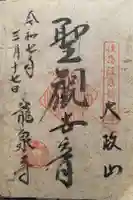 大政山
聖観世音
令和七年
三月十七日
龍泉寺